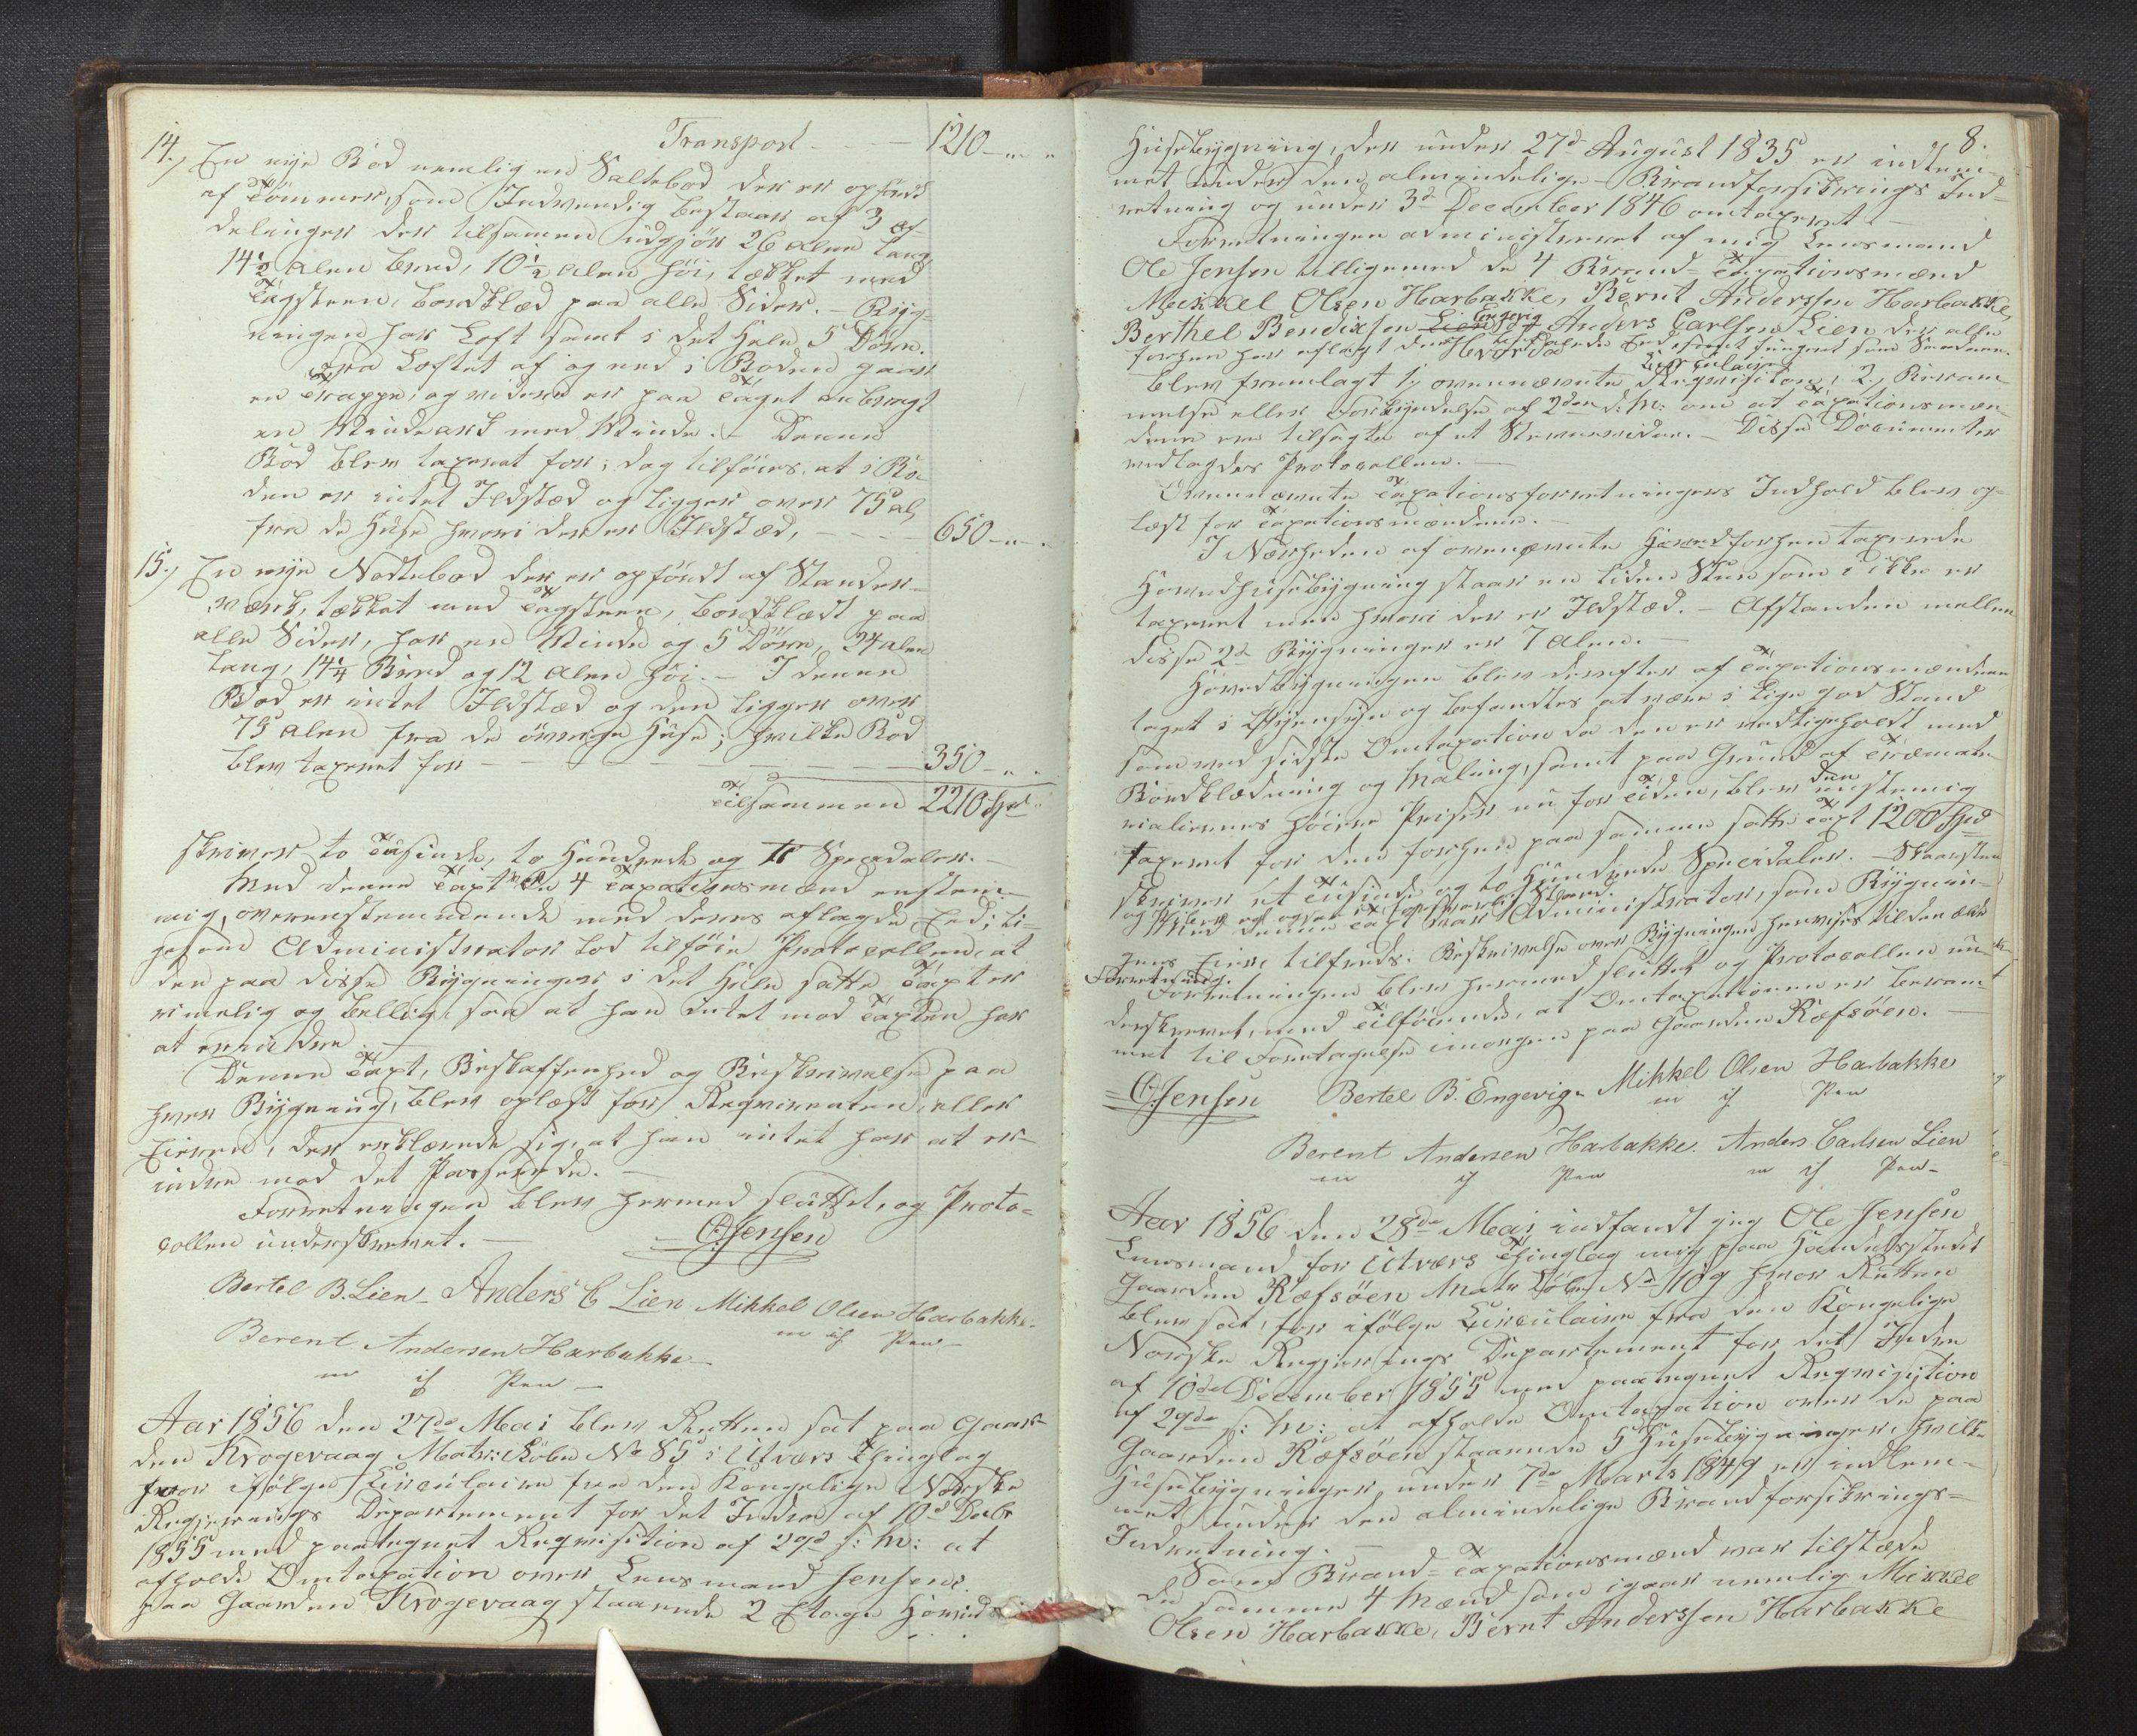 Transport - - - 1210 - " "
14., En nye Bod nemlig en Saltebod der er opfördt
af Tömmer, som Indvendig bestaar af 3 Af-
delinger der tilsamen udgjör 26 Alen lang
14½ Alen bred, 10½ Alen höi, tækket med
Tagsteen, bordklæd paa alle Sider. - Byg-
ningen har Loft samt i det Hele 5 Döre.
Fra Loftet af og ned i Boden gaar
en Trappe, og videre er paa Taget anbragt
en Vindeark med Vinde. - Denne
Bod blev taxeret for, dog tilföies, at i Bo-
den er intet Ildsted og ligger over 75 Al,
fra de Huse hvori der er Ildsted, - - - - 650 - " "
15., En nye Nodtebod der er opfördt af Stander-
værk, tækket med Tagsteen, bordklædt paa
alle Sider, har en Vinde og 5 Döre, 24 Alen
lang, 14¼ Bred og 12 Alen höi. - I denne
Bod er intet Ildsted og den ligger over
75 Alen fra de övrige Huse; hvilke Bod
blev taxeret for - - - - - 350 - " "
Tilsammen 2210 Spd "
skriver to Tusinde, to Hundrede og Ti Speciedaler. -
Med denne Taxt var de 4 Taxationsmænd enstem-
mig, overensstemmende med deres aflagde Eed; li-
gesom Administrator lod tilföie Protocollen, at
den paa disse Bygninger i det Hele satte Taxt er
rimelig og billig, saa at han intet mod Taxten har
at erindre. -
Denne Taxt, Beskaffenhed og Beskrivelse paa
hver Bygning, blev oplæst for Reqvirenten, eller
Eieren, der erklærede sig, at han intet har at er-
indre mod det Passerede. -
Forretningen blev hermed sluttet, og Proto-
collen underskrevet. - OJensen
Bertel B. Lien - Anders C Lien Mikkel Olsen Harbakke -
m if Pen -
Berent Andersen Harbakke -
m if Pen -
Aar 1856 den 27de Mai blev Retten sat paa Gaar-
den Krogevaag Matr: Löbe No 85 i Utvær Thinglag
hvor ifölge Circulaire fra den Kongelige Norske
Regjerings Departement for det Indre af 10d Decbr
1855 med paategnet Reqvisition af 29d s: M: at
afholde Omtaxation over Lensmand Jensens
paa Gaarden Krogevaag staaende 2 Etage Hoved
8.
Husebygning, der under 27d August 1835 er indtem-
met under den almindelige Brandforsikrings Ind-
retning og under 3d December 1846 omtaxeret -
Forretningen administreret af mig Lensmand
Ole Jensen tilligemed de 4 Brand-Taxationsmænd
Mikkel Olsen Harbakke, Bernt Anderssen Harbakke,
Berthel Bendixsen Lien Engevig og Anders Carlsen Lien der alle
forhen har aflagt den befalede Eed samt fungeret som Saadane.
Blev fremlagt 1., ovennævnte Circulaire Reqvisition, 2., Beram-
melse eller Forkyndelse af 2den d: M: om at Taxationsmæn-
dene ere tilsagte af et Stevnevidne. - Disse Documenter
vedlagdes Protocollen. -
Ovennævnte Taxationsforretningers Indhold blev op-
læst for Taxationsmændene. -
I Nærheden af ovennævnte forhen taxerede
Hovedhusebygning staar en liden Stue som ikke er
taxeret men hvori der er Ildsted. - Afstanden mellem
disse 2de Bygninger er 7 Alen. -
Hovedbygningen blev derefter af Taxationsmændene
taget i Øiensyn og befandtes at være i lige god Stand
som ved sidste Omtaxation da den er vedligeholdt med
Bordklædning og Maling, samt paa Grund af Træmate-
rialiernes höiere Priser nu for Tiden, blev den enstemmig
taxeret for den forhen paa samme satte Taxt 1200 Spd
skriver et Tusinde og to Hundrede Speciedaler. - Skaarsteen
og Piber er ogsaa i forsvarlig Stand.
Med denne Taxt var Administrator, som Bygnin-
gens Eier, tilfreds. Beskrivelse over Bygningen henvises til den ældre
Forretning.
Forretningen blev hermed sluttet og Protocollen un-
derskrevet, med Tilföiende, at Omtaxationen er beram-
met til Foretagelse imorgen paa Gaarden Ræfsöen. -
OJensen Bertel B. Engevig - Mikkel Olsen Harbakke
m if Pen
Berent Andersen Harbakke. Anders Carlsen Lien
m if Pen m if Pen -
Aar 1856 den 28de Mai, indfandt jeg Ole Jensen
Lensmand for Utvær Thinglag mig paa Handelsstedet
Gaarden Ræfsöen Matr Löbe No 109 hvor Retten
blev sat, for ifölge Circulaire fra den Kongelige
Norske Regjerings Departement for det Indre
af 10de December 1855 med paategnet Reqvisition
af 29de s: M: at afholde Omtaxation over de paa
Gaarden Ræfsöen staaende 5 Husebygninger, hvilke
Husebygninger, under 7de Marts 1849 er indlem-
met under den almindelige Brandforsikrings-
Indretning. -
Som Brand-Taxationsmænd var tilstæde
de samme 4 Mænd som igaar nemlig Mikkel
Olsen Harbakke, Bernt Anderssen Harbakke